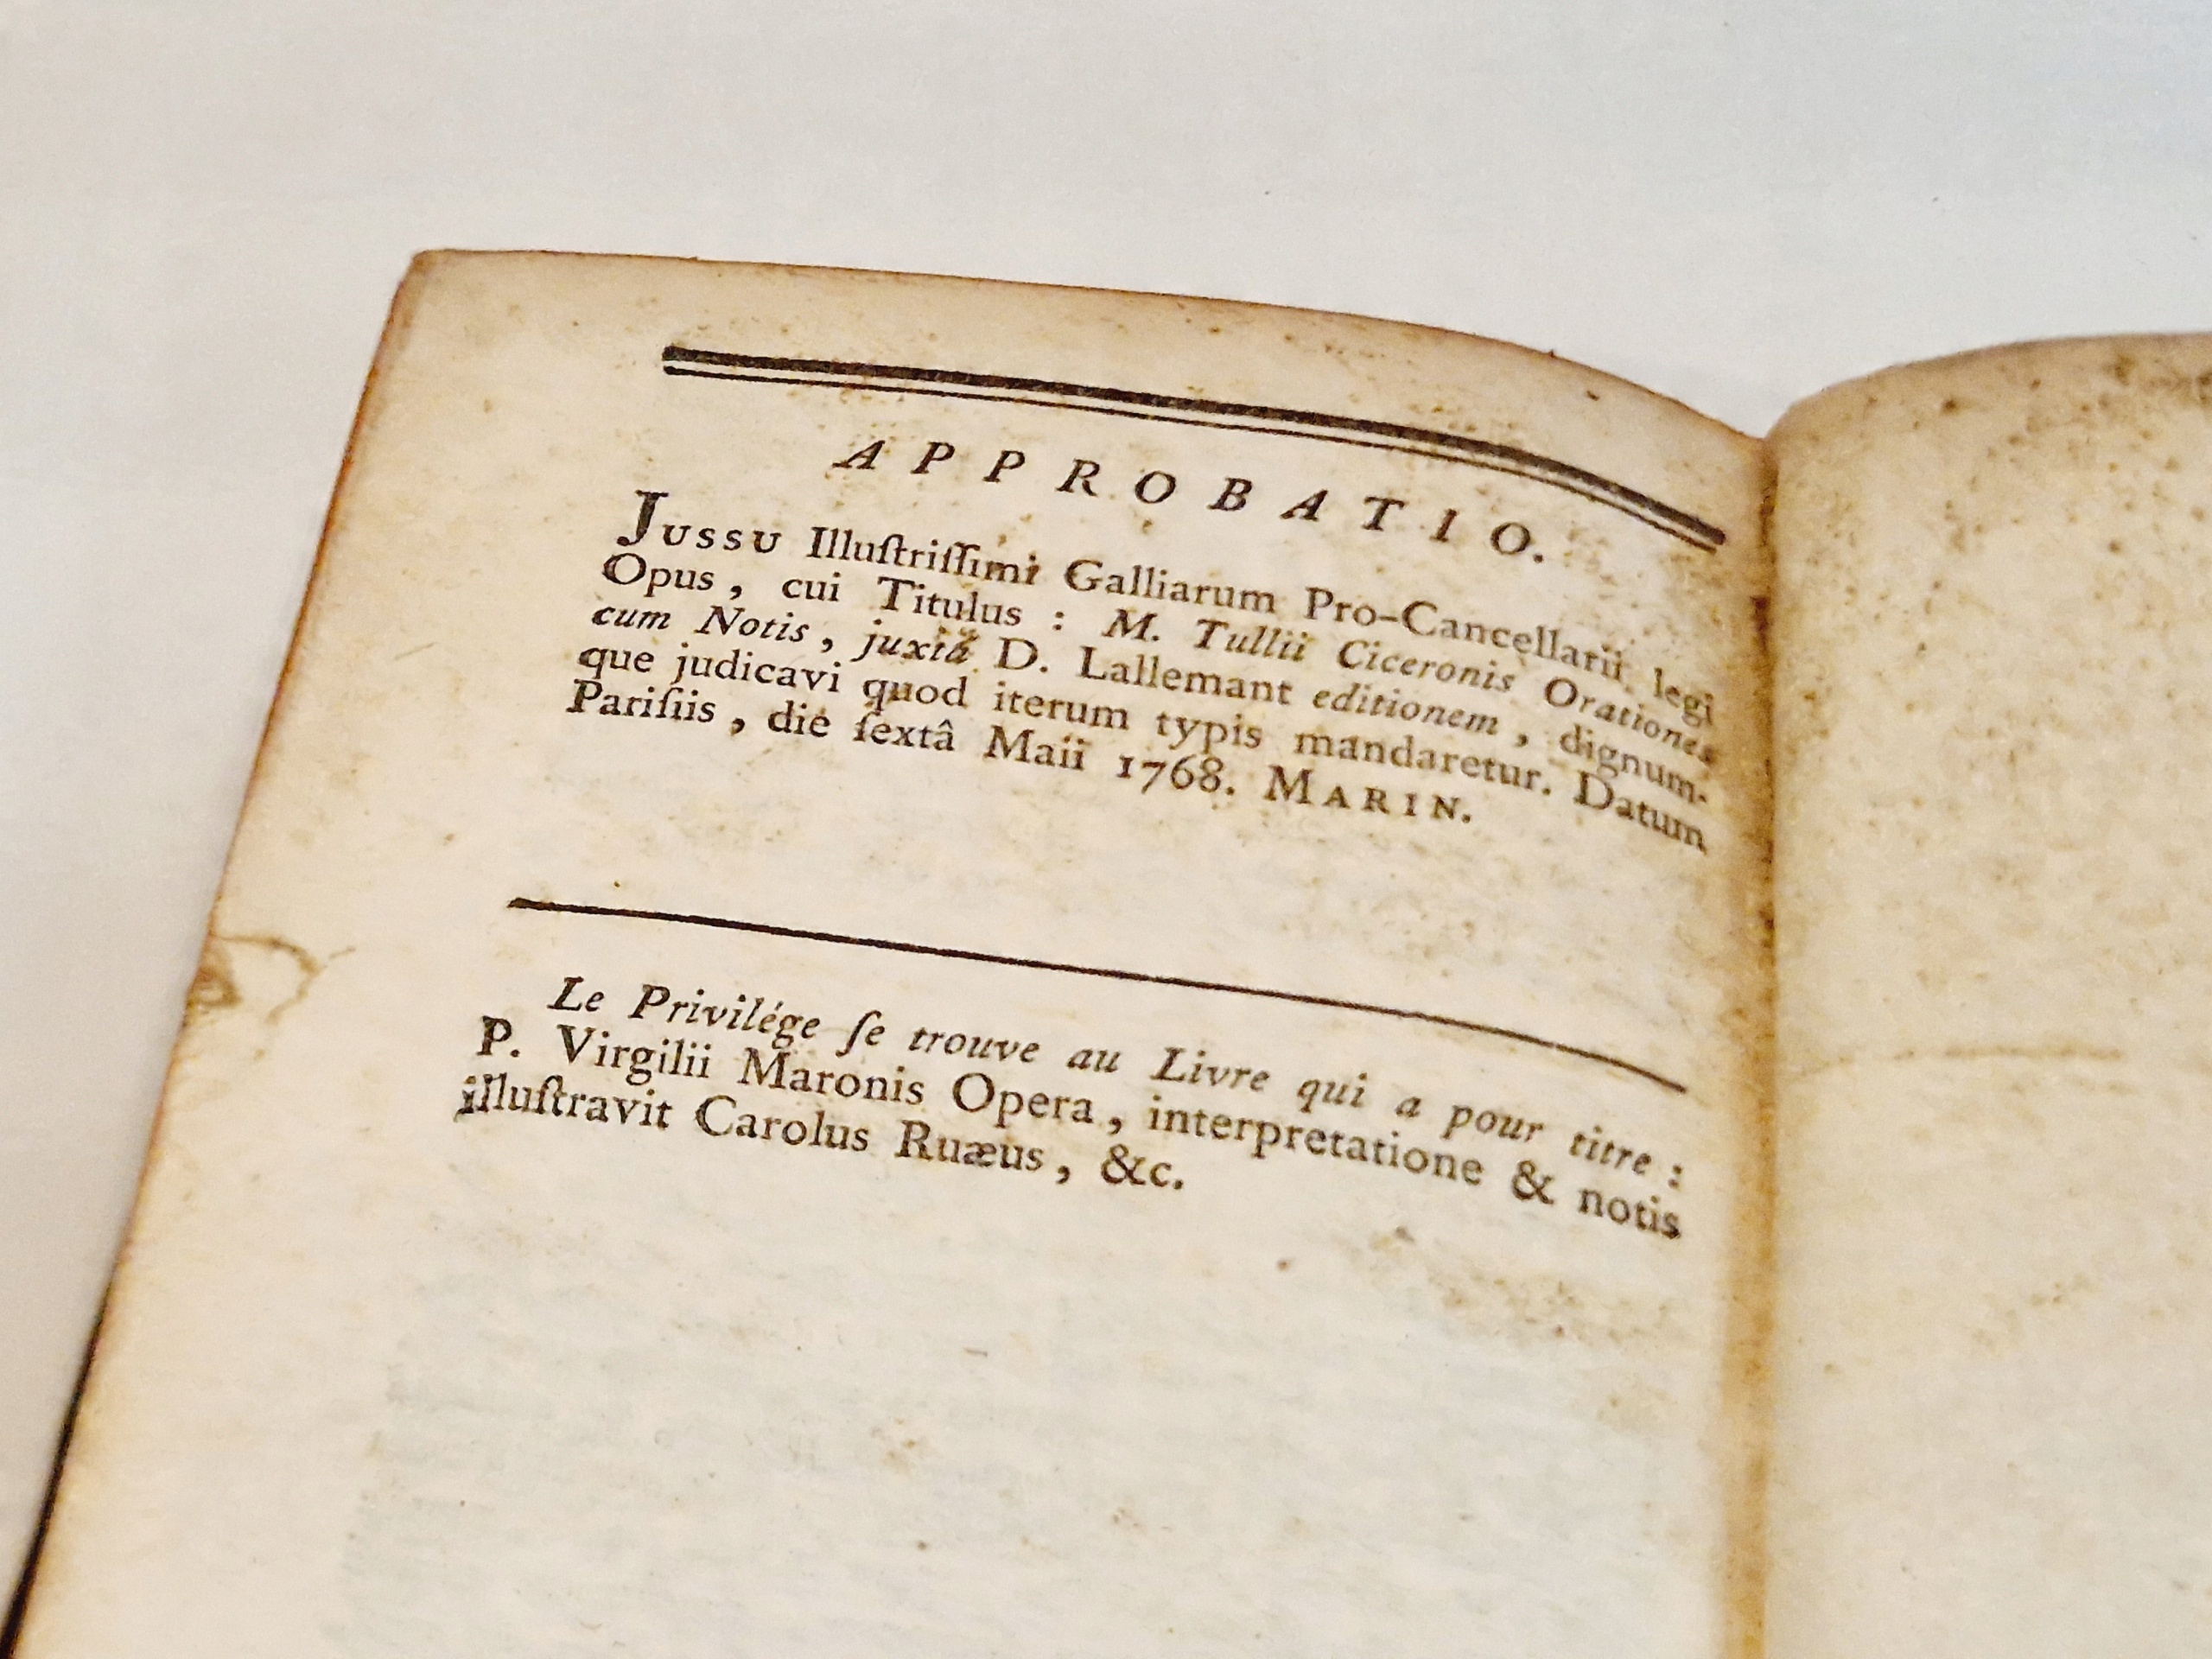 APPROBATIO.
Jussu Illuſtriſſimi Galliarum Pro-Cancellarii legi
Opus, cui Titulus : M. Tullii Ciceronis Orationes
cum Notis, juxtâ D. Lallemant editionem, dignum-
que judicavi quod iterum typis mandaretur. Datum
Pariſiis, die ſextâ Maii 1768. MARIN.
Le Privilége ſe trouve au Livre qui a pour titre :
P. Virgilii Maronis Opera, interpretatione & notis
illuſtravit Carolus Ruæus, &c.